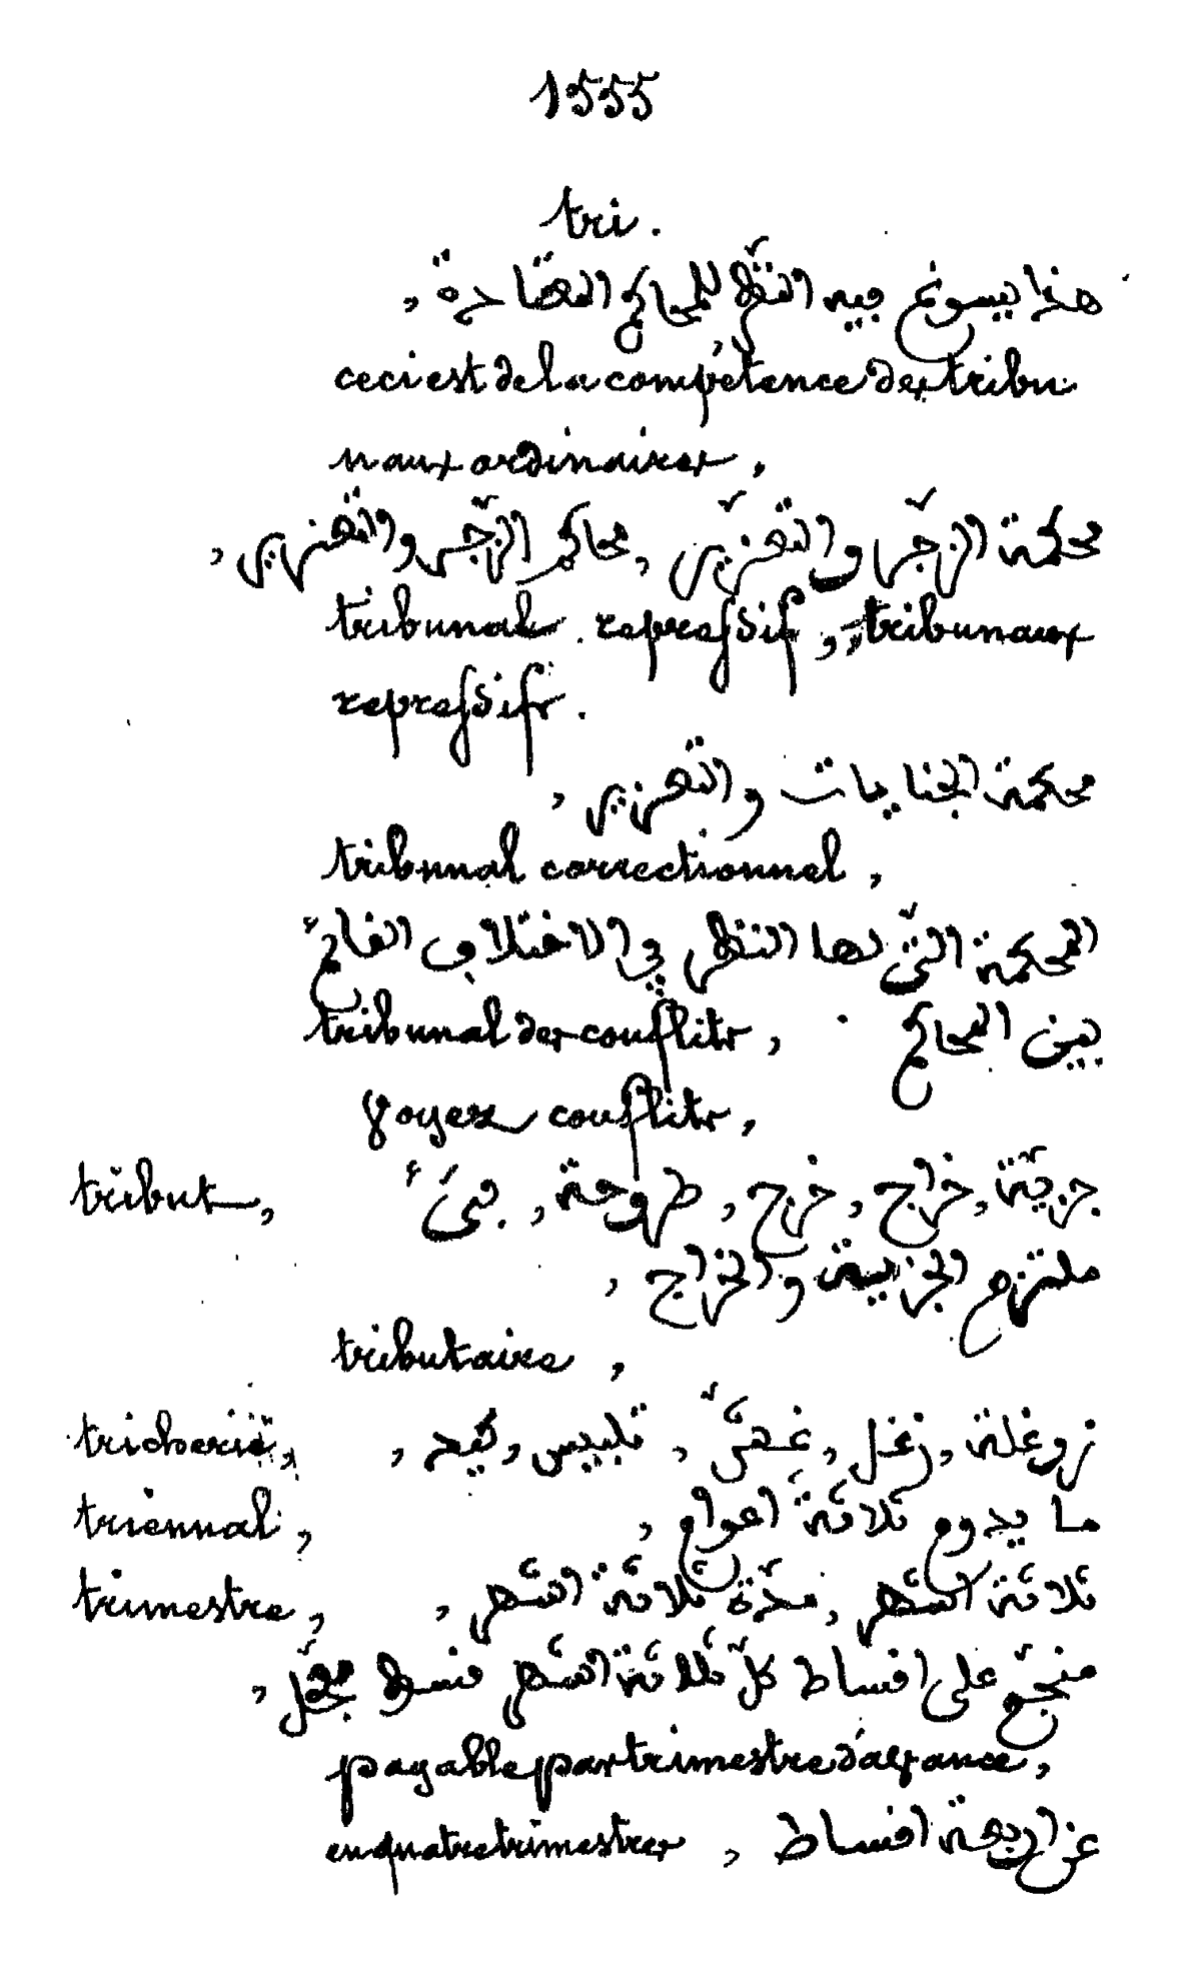 1555
tri.
هذا يسوغ فيه النّظر للمحاكم المعتادة ,
ceci est de la compétence des tribu-
naux ordinaires ,
محكمة الزّجر والتّعزير , محاكم الزّجر والتّعزير ,
tribunal repressif , tribunaux
repressifs .
محكمة الجنايات والتعزير ,
tribunal correctionnel ,
المحكمة الّتي لها النظر في الاختلاف القائم
بين المحاكم
tribunal des conflits ,
Voyez conflits ,
tribut , جزية , خراج , خرج , طروحة ,
ملتزم الجزية والخراج ,
tributaire ,
tricherie , زوغلة , زغل , غشّ , تلبيس , كيد ,
triennal , ما يدوم ثلاثة اعوام ,
trimestre , ثلاثة اشهر , مدّة ثلاثة اشهر ,
منجّم على اقساط كلّ ثلاثة اشهر قسط معجّل ,
payable par trimestre d'avance ,
en quatre trimestres , عن اربعة اقساط